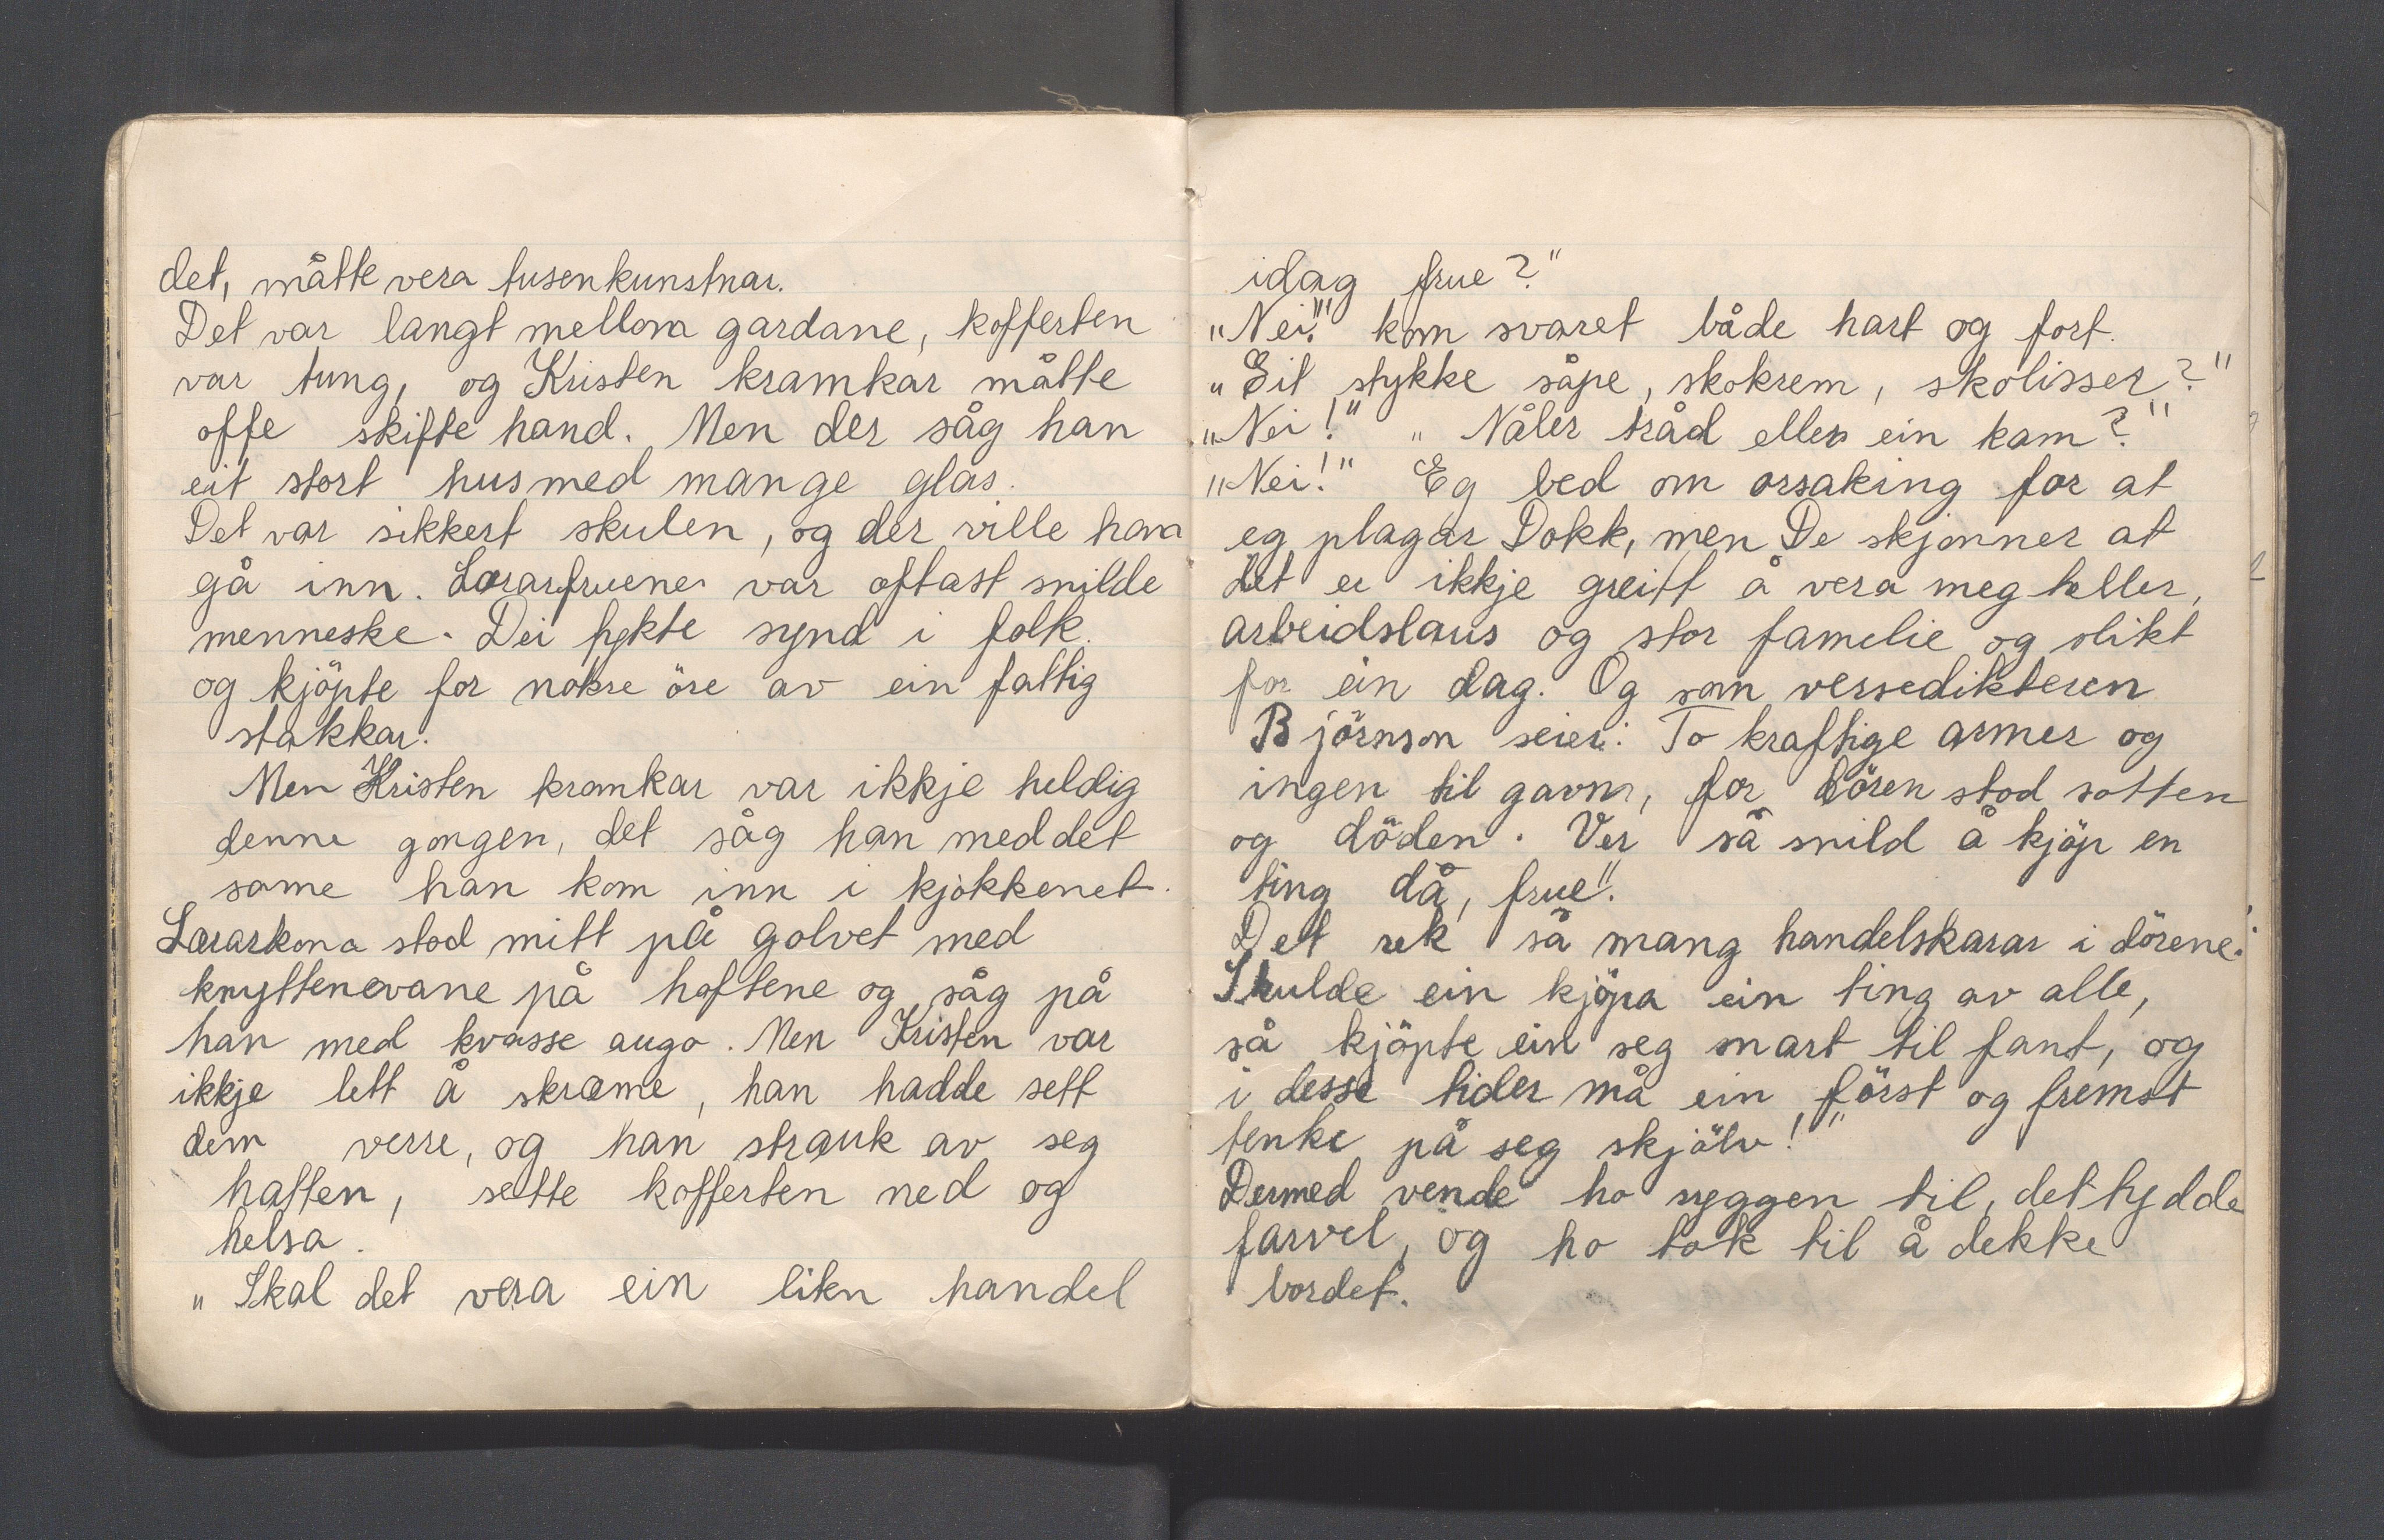 det, måtte vera tusenkunstnar.
Det var langt mellom gardane, kofferten
var tung, og Kristen kramkar måtte
offe skifte hand. Men der såg han
eit stort hus med mange glas.
Det var sikkert skulen, og der ville han
gå inn. Lærarfruene var oftast snilde
menneske. Dei tykte synd i folk
og kjöpte for nokre öre av ein fattig
stakkar.
Men Kristen kramkar var ikkje heldig
denne gongen, det såg han med det
same han kom inn i kjökkenet.
Lærarkona stod mitt på golvet med
knyttenevane på hoftene og såg på
han med kvasse augo. Men Kristen var
ikkje lett å skræme, han hadde sett
dem verre, og han strauk av seg
hatten, sette kofferten ned og
helsa.
„Skal det vera ein liten handel
idag frue?"
„Nei!" kom svaret både hart og fort.
„Eit stykke såpe, skokrem, skolisser?"
„Nei!" „Nåler tråd eller ein kam?"
„Nei!" Eg bed om orsaking for at
eg plagar Dokk, men De skjønner at
det er ikkje greitt å vera meg heller,
arbeidslaus og stor familie og slikt
for ein dag. Og som versedikteren
Björnson seier: To kraftige armer og
ingen til gavn, for dören stod sotten
og döden. Ver så snild å kjöp en
ting då, frue".
Det rek så mang handelskarar i dörene.
Skulde ein kjöpa ein ting av alle,
så kjöpte ein seg snart til fant, og
i desse tider må ein först og fremst
tenke på seg skjölv!"
Dermed vende ho ryggen til, det tydde
farvel, og ho tok til å dekke
bordet.